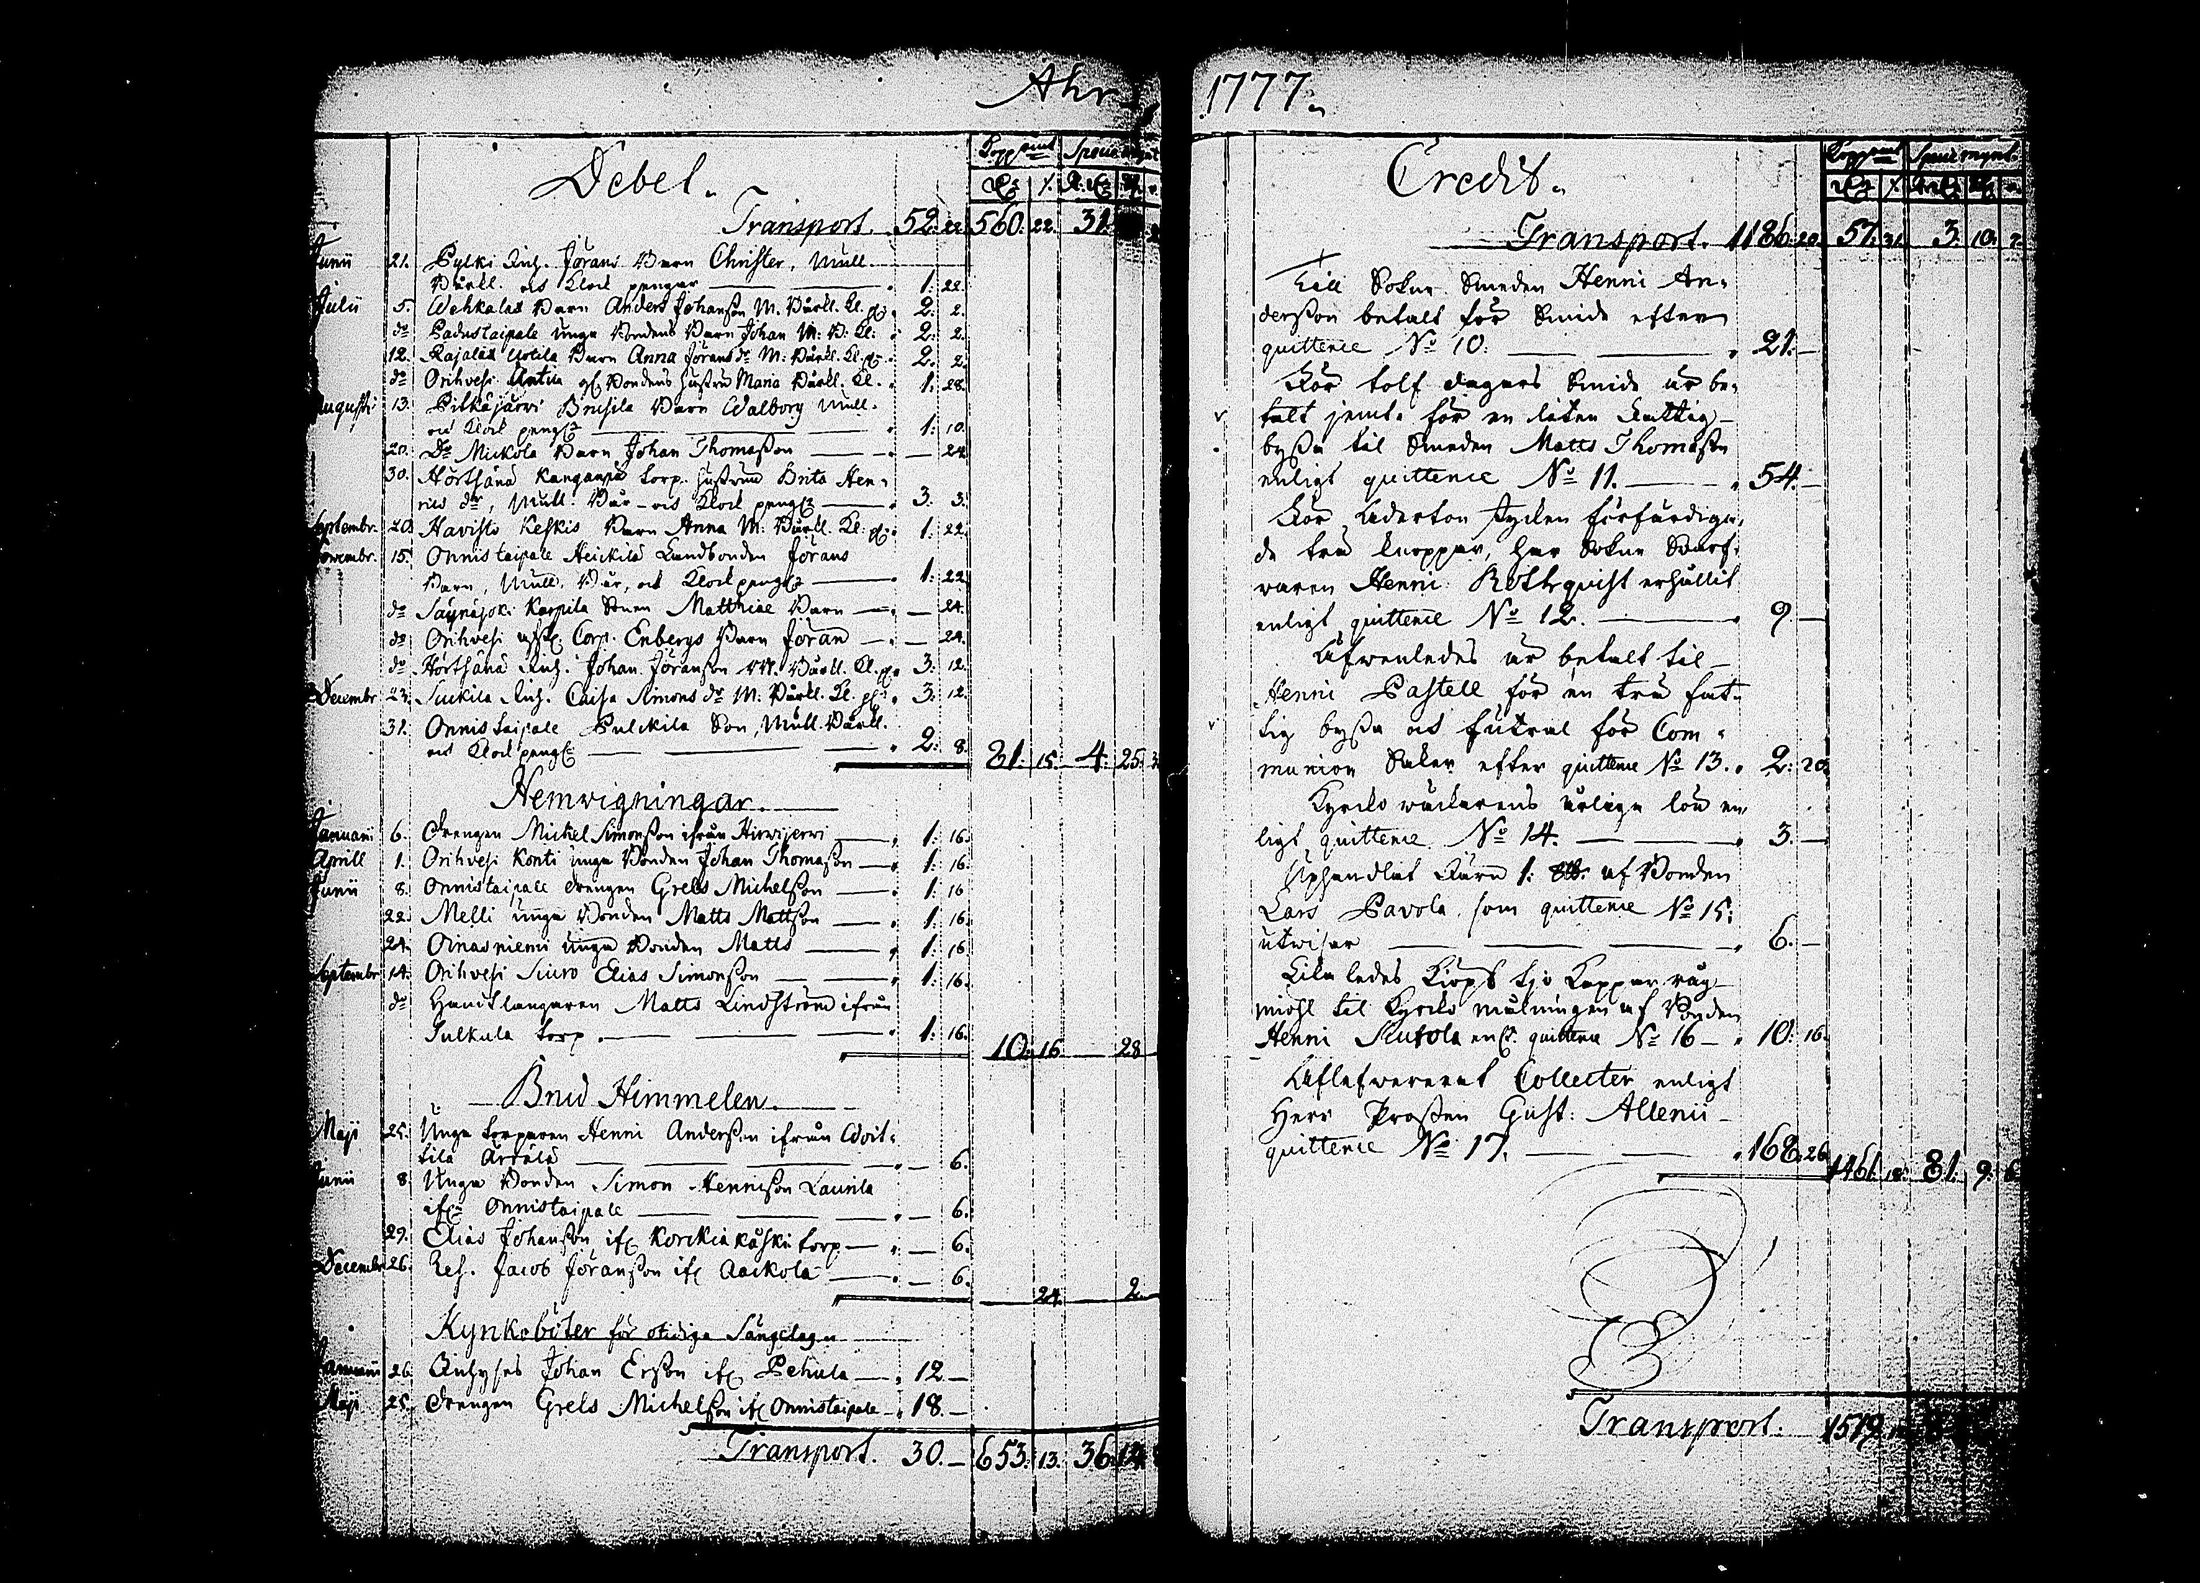 Åhr
Debet.
Kopp mt Specie mynt
Transport. 52: 22 560: 22. 31:
Junii 21. Pylki Inh. Jörans Barn Christer, Mull.
Bårkl. och Klock pengar 1: 22
Julii 5. Wehkalax Barn Anders Johanßon M. Bårkl. Kl. p: 2: 2.
do Padustaipale unga Bondens Barn Johan M: B: Kl: 2: 2.
12. Rajalax Uotila Barn Anna Jörans dr M: Bårkl. Kl. p: 2: 2.
do Orihvesi Antila gl Bondens hustru Maria Bårkl. Kl. 1: 28.
Augusti 13. Pitkäjärvi Brusila Barn Walborg Mull.
och Klock peng 1: 10.
20. Do Mickola Barn Johan Thomaßon — 24
30. Hörtsänä Kanganpä torp. hustrun Brita Hen-
rics dr, Mull. Bår- och Klock peng 3. 3.
Septembr. 20. Havisto Keskis Barn Anna M: Bårkl. Kl: p: 1: 22.
Novembr. 15. Onnistaipale Heickilä Landbonden Jörans
Barn, Mull. Bår, och Klock peng 1: 22
do Säynäjoki Karpila Sonen Matthiae Barn — 24.
do Orihvesi Corp: Enbergs Barn Jöran — 24.
do Hörtsänä Inh. Johan Jöranßon M. Bårkl. Kl. p. 3: 12.
Decembr 23. Suckila Inh. Caisa Simons dr M: Bårkl. Kl. p: 3: 12.
31. Onnistaipale Pulckila Son, Mull. Bårkl.
och Klock peng 2: 8. 31: 15. 4: 25:
Hemwigningar.
Januarii 6. Drengen Michel Simonßon ifrån Hirwijerwi 1: 16.
Aprill 1. Orihvesi Konti unga Bonden Johan Thomaßon 1: 16.
Junii 8. Onnistaipale drengen Grels Michelßon 1: 16
22. Melli unga Bonden Matts Mattßon 1: 16.
24. Oinasniemi unga Bonden Matts 1: 16
Septembr 14. Orihvesi Siuro Elias Simonßon 1: 16.
do Handtlangaren Matts Lindström ifrån
Julkula torp. 1: 16. 10: 16. 28
Brud Himmelen.
Maji 25. Unga torparen Henric Anderßon ifrån Woit-
tila — 6.
Junii 8. Unga Bonden Simon Henricßon Laurila
ifrn Onnistaipale — 6.
29. Elias Johanßon ifr Korckiakåski torp — 6.
Decembr 26. Jacob Jöranßon ifr Aackola — 6. 24. 2.
Kyrkoböter för otidiga Sängelagn
Januarii 26. Inhyses Johan Erßon ifr Pehula 12 —
Maji 25. Drengen Grels Michelßon ifr Onnistaipale 18. —
Transport. 30. — 653: 13. 36: 14.
1777.
Credit.
Kopp mt Specie mynt.
Transport. 1186: 20. 57: 31. 3. 10. 2.
Till Sokne Smeden Henric An-
derßon betalt för Smide efter
quittence No 10. 21. —
För tolf dagars Smide är be-
talt jemte för en liten Fattig-
byßa til Smeden Matts Thomaßon
enligt quittence No 11. 54. —
För Aderton stycken förfärdiga-
de trä knoppar, har Sokne Swarf-
waren Henric Rothquist erhållit
enligt quittence No 12. 9. —
Äfwenledes är betalt til
Henric Pastell för en trä fat-
tig byßa och futral för Com-
munion Saker efter quittence No 13. 2: 20.
Kyrcko wäcktarens årliga lön en-
ligt quittence No 14. 3. —
Uphandlat Tära 1: af Bonden
Lars Pavola som quittence No 15:
utwisar 6. —
Lika ledes Kiöpt tjo Kappar råg-
miöhl til Kyrcko målningen af Bonden
Henric Skutola enl. quittence No 16 10: 16.
Aflefwererat Collecter enligt
Herr Prosten Gust: Allenii
quittence No 17. 168: 26 1461. 18. 81. 9. 6
Transport. 1519